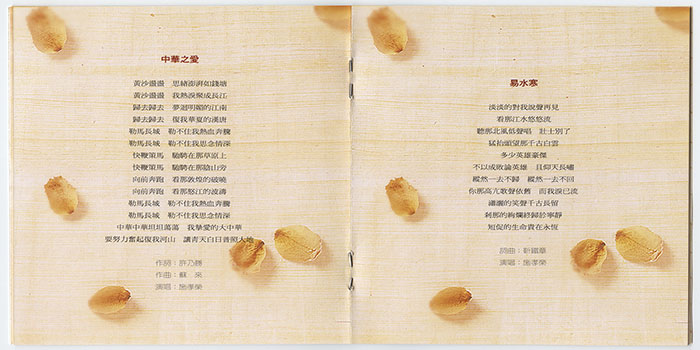 中華之愛
黃沙漫漫　思緒澎湃如錢塘
黃沙漫漫　我熱淚聚成長江
歸去歸去　夢迴明媚的江南
歸去歸去　復我華夏的漢唐
勒馬長城　勒不住我熱血奔騰
勒馬長城　勒不住我思念情深
快鞭策馬　馳騁在那草原上
快鞭策馬　馳騁在那陰山旁
向前奔跑　看那敦煌的破曉
向前奔跑　看那怒江的波濤
勒馬長城　勒不住我熱血奔騰
勒馬長城　勒不住我思念情深
中華中華坦坦蕩蕩　我摯愛的大中華
要努力奮起復我河山　讓青天白日普照大地
作詞：許乃勝
作曲：蘇　來
演唱：施孝榮
易水寒
淡淡的對我說聲再見
看那江水悠悠流
聽那北風低聲唱　壯士別了
猛抬頭望那千古白雲
多少英雄豪傑
不以成敗論英雄　且仰天長嘯
縱然一去不歸　縱然一去不回
你那高亢歌聲依舊　而我淚已流
瀟瀟的笑聲千古長留
剎那的絢爛終歸於寧靜
短促的生命貴在永恆
詞曲：靳鐵章
演唱：施孝榮